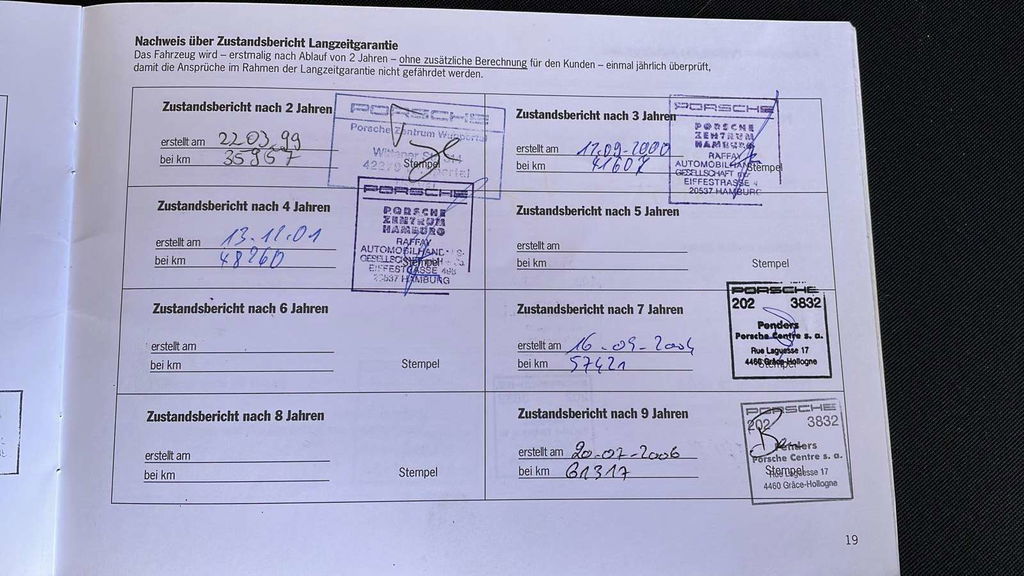 Nachweis über Zustandsbericht Langzeitgarantie
Das Fahrzeug wird – erstmalig nach Ablauf von 2 Jahren – ohne zusätzliche Berechnung für den Kunden – einmal jährlich überprüft,
damit die Ansprüche im Rahmen der Langzeitgarantie nicht gefährdet werden.
Zustandsbericht nach 2 Jahren
erstellt am 22.03.99
bei km 35957
Stempel
PORSCHE
Porsche Zentrum Wuppertal
42279
Zustandsbericht nach 3 Jahren
erstellt am 12.09-2000
bei km 41607
Stempel
PORSCHE
PORSCHE
ZENTRUM
HAMBURG
RAFFAY
AUTOMOBILHAN
GESELLSCHAFT
EIFFESTRASSE
20537 HAMBURG
Zustandsbericht nach 4 Jahren
erstellt am 13.11.01
bei km 48260
Stempel
PORSCHE
PORSCHE
ZENTRUM
HAMBURG
RAFFAY
AUTOMOBILHAND
EIFFESTRASSE
20537 HAMBURG
Zustandsbericht nach 5 Jahren
erstellt am
bei km
Stempel
Zustandsbericht nach 6 Jahren
erstellt am
bei km
Stempel
Zustandsbericht nach 7 Jahren
erstellt am 16-09-2004
bei km 57421
Stempel
PORSCHE
202 3832
Penders
Porsche Centre s. a.
Rue Laguesse 17
4460 Grâce-Hollogne
Zustandsbericht nach 8 Jahren
erstellt am
bei km
Stempel
Zustandsbericht nach 9 Jahren
erstellt am 20-07-2006
bei km 61317
Stempel
PORSCHE
202 3832
Penders
Porsche Centre s. a.
Rue Laguesse 17
4460 Grâce-Hollogne
19